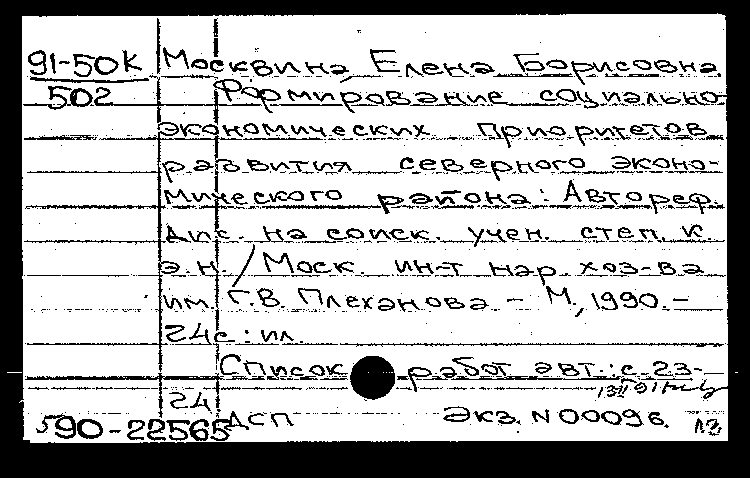 91-50К Москвина, Елена Борисовна
502 Формирование социально-
экономических приоритетов
развития северного эконо-
мического района: Автореф.
дис. на соиск. учен. степ. к.
э.н. / Моск. ин-т нар. хоз-ва
им. Г.В. Плеханова - М., 1990.-
24с: ил.
Список работ авт.: с.23-
24
590-22565 ДСП Экз. N 00096.